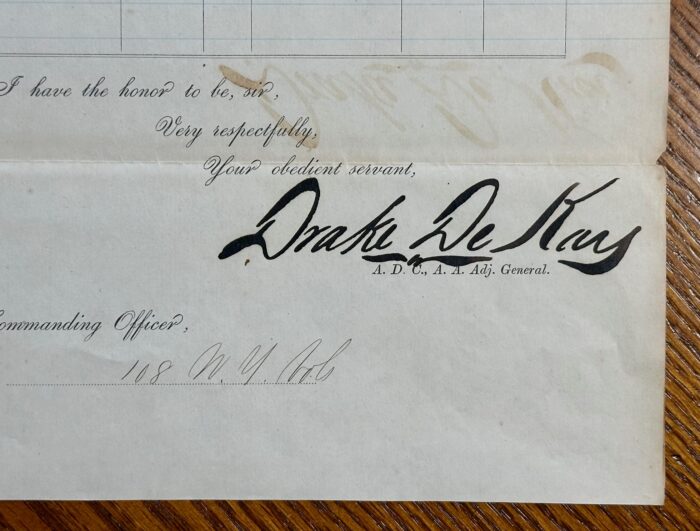 I have the honor to be, sir,
Very respectfully,
Your obedient servant,
Drake De Kay
A. D. C., A. A. Adj. General.
Commanding Officer,
108 N. Y. Vols